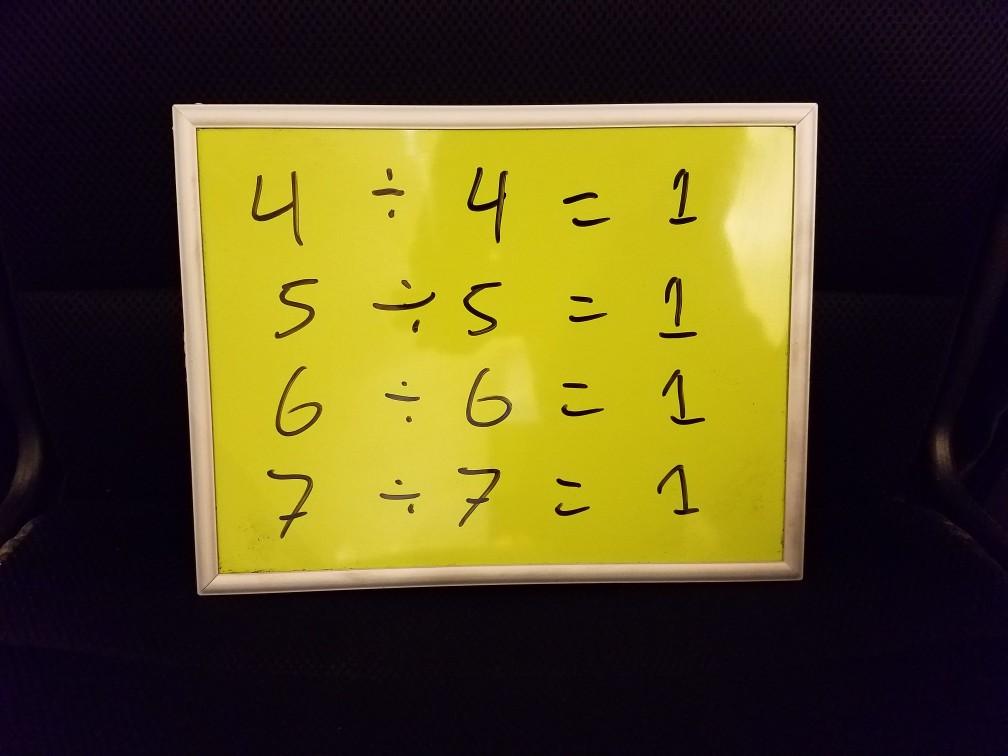 4 ÷ 4 = 1
5 ÷ 5 = 1
6 ÷ 6 = 1
7 ÷ 7 = 1